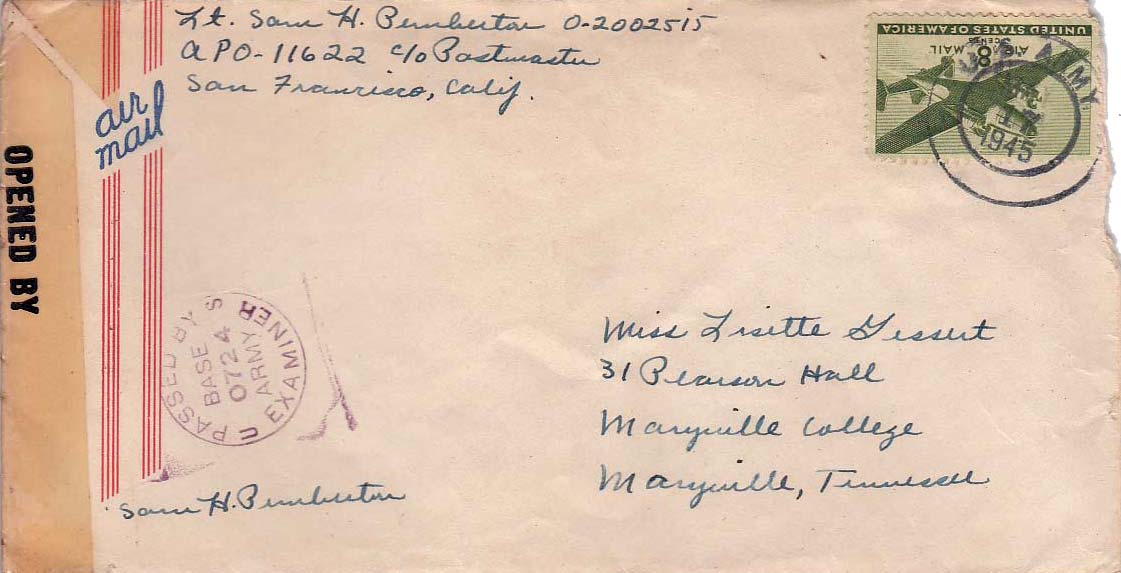 Lt. Sam H. Pemberton O-2002515
APO-11622 c/o Postmaster
San Francisco, Calif.
air
mail
OPENED BY
UNITED STATES OF AMERICA
AIR MAIL
8 CENTS
U.S. ARMY
17
1945
PASSED BY
BASE
0724
ARMY
EXAMINER
U S
Miss Lisette Gessert
31 Pearson Hall
Maryville College
Maryville, Tennessee
Sam H. Pemberton